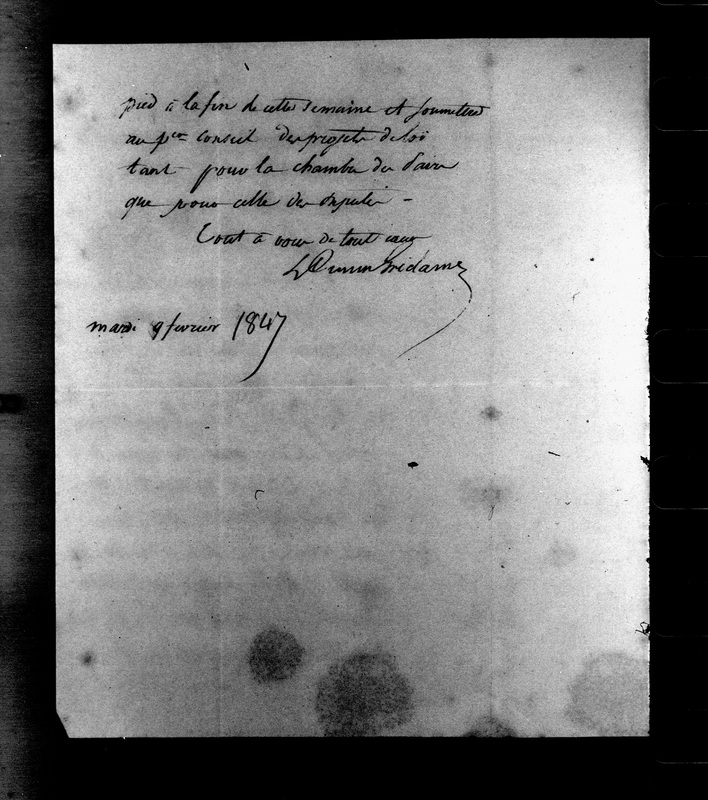 pied à la fin de cette semaine et soumettre
au p.er conseil des projets de loi
tant pour la chambre des Pairs
que pour celle des députés -
Tout à vous de tout cœur
L Cunin Gridaine
mardi 9 février 1847